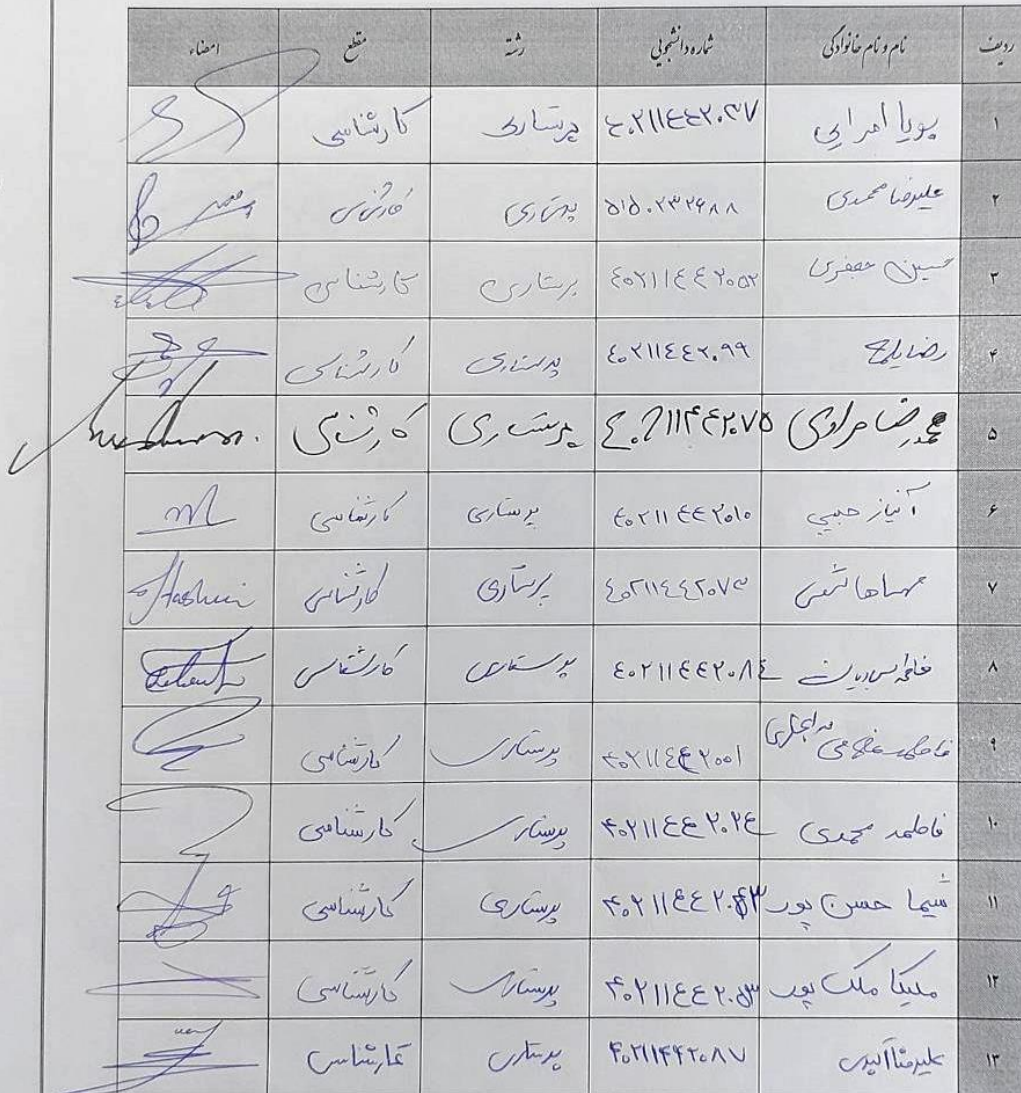 ردیف نام و نام خانوادگی شماره دانشجویی رشته مقطع امضاء
۱ پویا امرایی ۴۰۲۱۱۴۴۲۰۳۷ پرستاری کارشناسی
۲ علیرضا محمدی ۵۱۵۰۲۳۲۶۸۸ پرستاری کارشناسی
۳ حسین جعفری ۴۰۲۱۱۴۴۲۰۵۲ پرستاری کارشناسی
۴ رضا ۴۰۲۱۱۴۴۲۰۹۹ پرستاری کارشناسی
۵ محمدرضا مرادی ۴۰۲۱۱۴۴۲۰۷۵ پرستاری کارشناسی
۶ آنیاز حبیبی ۴۰۲۱۱۴۴۲۰۱۰ پرستاری کارشناسی
۷ مهسا هاشمی ۴۰۲۱۱۴۴۲۰۷۳ پرستاری کارشناسی Hashemi
۸ فاطمه ۴۰۲۱۱۴۴۲۰۸۴ پرستاری کارشناسی
۹ فاطمه غلامی ۴۰۲۱۱۴۴۲۰۰۱ پرستاری کارشناسی
۱۰ فاطمه محمدی ۴۰۲۱۱۴۴۲۰۲۴ پرستاری کارشناسی
۱۱ شیما حسن پور ۴۰۲۱۱۴۴۲۰۴۳ پرستاری کارشناسی
۱۲ ملیکا ملک پور ۴۰۲۱۱۴۴۲۰۵۳ پرستاری کارشناسی
۱۳ علیرضا ۴۰۲۱۱۴۴۲۰۸۷ پرستاری کارشناسی